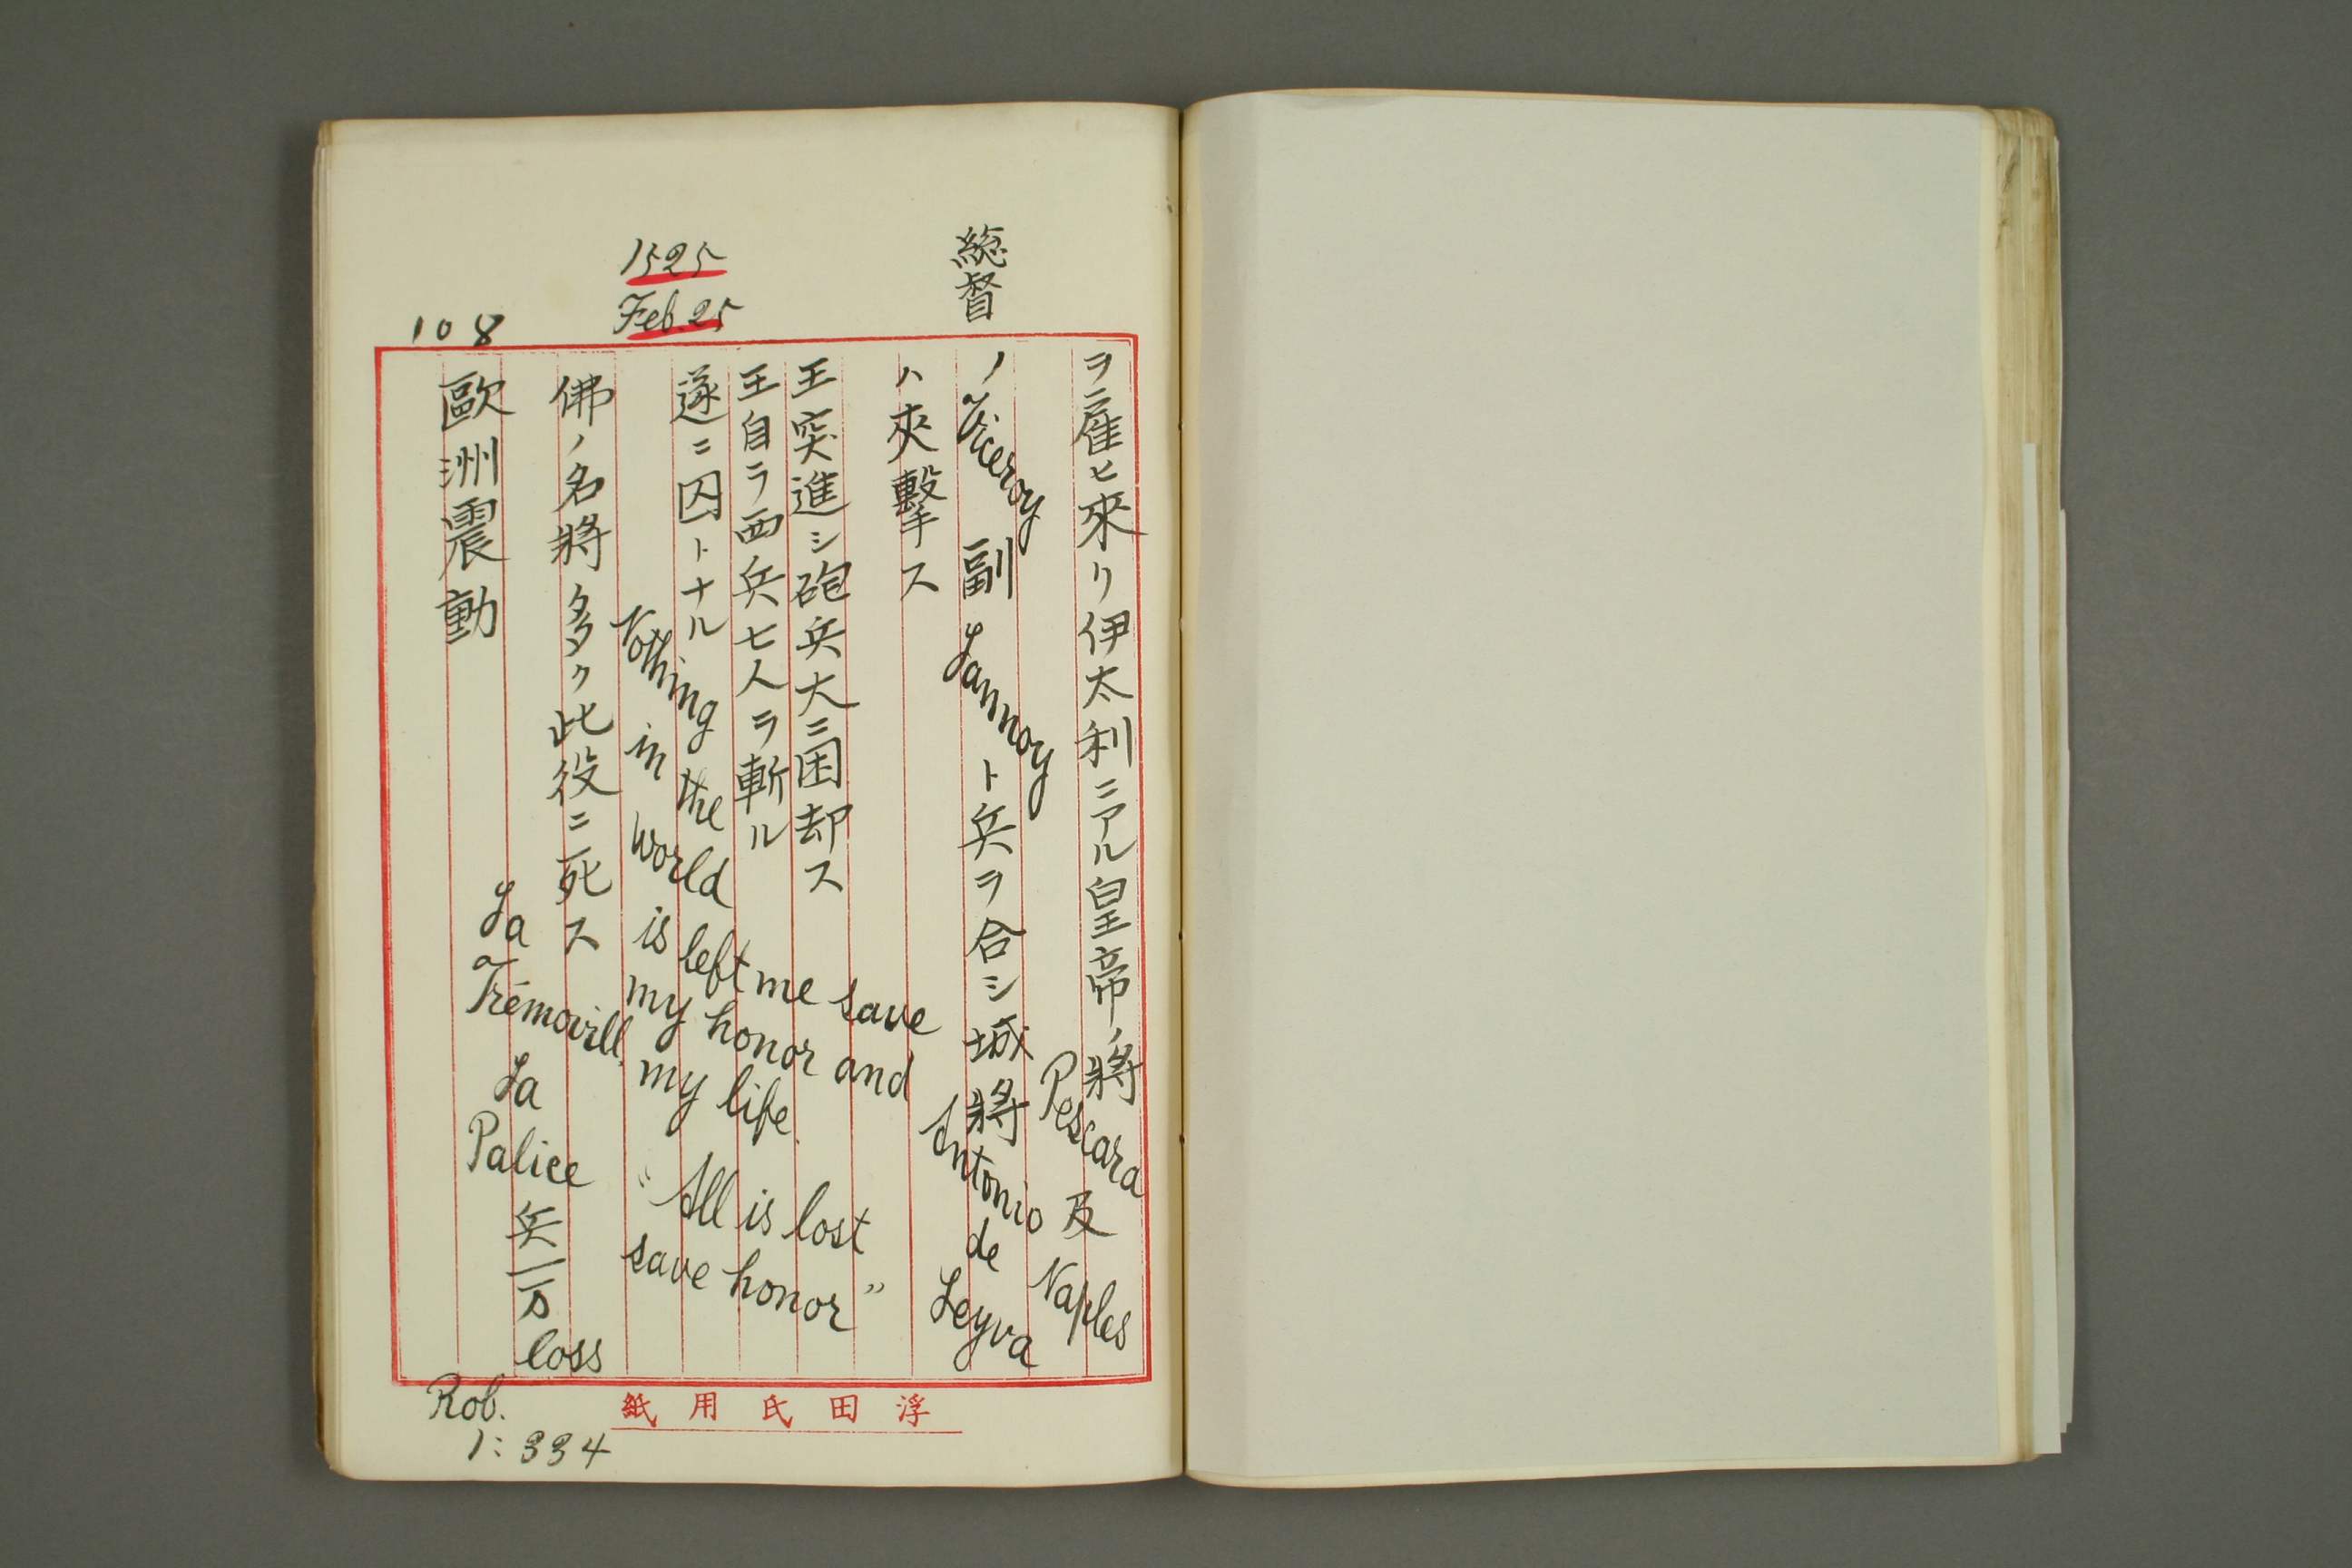 総督
1525
Feb. 25
108
ヲ雇ヒ來リ伊太利ニアル皇帝ノ將 Pescara 及 Naples
ノ Viceroy 副 Lannoy ト兵ヲ合シ城將 Antonio de Leyva
ハ夾撃ス
王突進シ砲兵大ニ困却ス
王自ラ西兵七人ヲ斬ル
遂ニ囚トナル
Nothing
in the
world
is left me save
my honor and
my life.
"All is lost
save honor"
佛ノ名將多ク此役ニ死ス
La
Trémouill.
La
Palice
兵一万
loss
歐洲震動
Rob.
1:334
浮田氏用紙